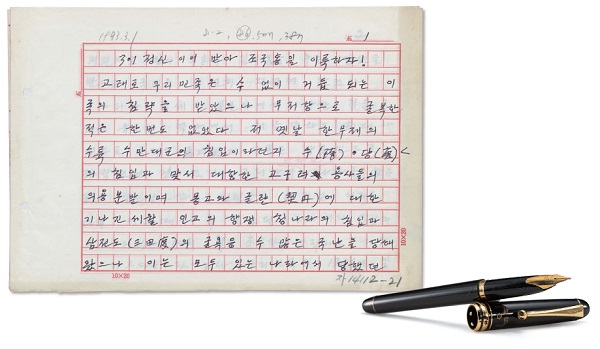 1993.3.1
1
3·1정신 이어 받아 조국통일 이룩하자!
고래로 우리 민족은 수 없이 거듭 되는 이
족의 침략을 받았으나 무저항으로 굴복한
적은 한번도 없었다 저 옛날 한무제의
수륙 수만대군의 침입이라던지 수(隋)·당(唐)
의 침입과 맞서 대항한 고구려 용사들의
의용분발이며 몽고와 글란(契丹)에 대한
기나긴 세월 인고의 항쟁 청나라의 침입과
삼전도(三田渡)의 굴욕등 수 많은 국난을 당해
왔으나 이는 모두 있는 나라에서 당했던
10×20
10×20
자14112-21